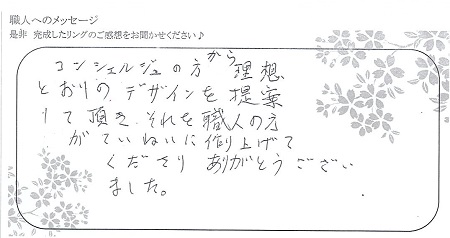 職人へのメッセージ
是非 完成したリングのご感想をお聞かせください♪
コンシェルジュの方から理想
とおりのデザインを提案
して頂き、それを職人の方
がていねいに作り上げて
くださり ありがとうござい
ました。